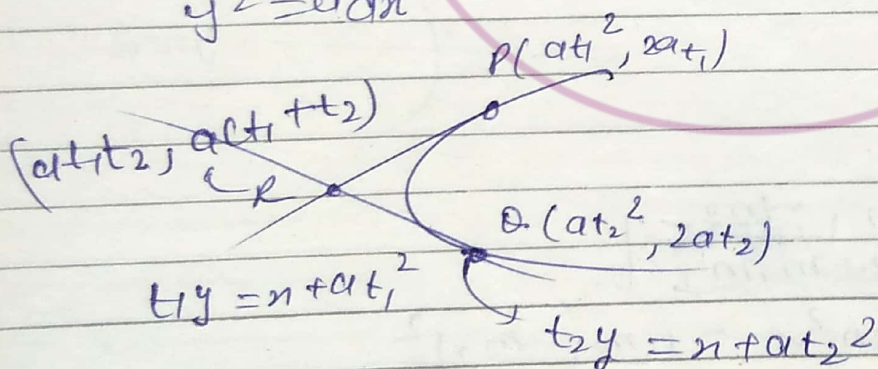 y² = 4ax
P(at₁², 2at₁)
(at₁t₂, a(t₁+t₂)
R
Q(at₂², 2at₂)
t₁y = x + at₁²
t₂y = x + at₂²